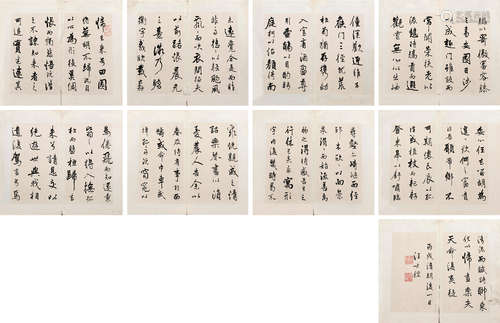 歸去來兮田園
將蕪胡不歸既自
以心為形役奚惆
悵而獨悲悟已往
之不諫知來者之
可追實迷途其
未遠覺今是而昨
非舟遙遙以輕颺風
飄飄而吹衣問征夫
以前路恨晨光
之熹微乃瞻
衡宇載欣載奔
僮僕歡迎稚子
候門三徑就荒
松菊猶存攜幼
入室有酒盈尊
引壺觴以自酌眄
庭柯以怡顏倚南
牕以寄傲審容膝
之易安園日涉
以成趣門雖設而
常關策扶老以
流憩時矯首而遐
觀雲無心以出岫
鳥倦飛而知還景
翳翳以將入撫孤
松而盤桓歸去
來兮請息交以
絕遊世與我相
遺復駕言兮焉
求悅親戚之情
話樂琴書以消
憂農人告余以
春及將有事于西
疇或命巾車或
棹孤舟既窈窕以
尋壑亦崎嶇而經
邱木欣欣以向榮
泉涓涓而始流善萬
物之得時感吾生之
行休已矣乎寓形
宇內復幾時曷不
委心任去留胡為
遑遑欲何之富貴
非吾願帝鄉不
可期懷良辰以孤
往或植杖而耘耔
登東皋以舒嘯臨
清流而賦詩聊乘
化以歸盡樂夫
天命復奚疑
丙戌清明後一日